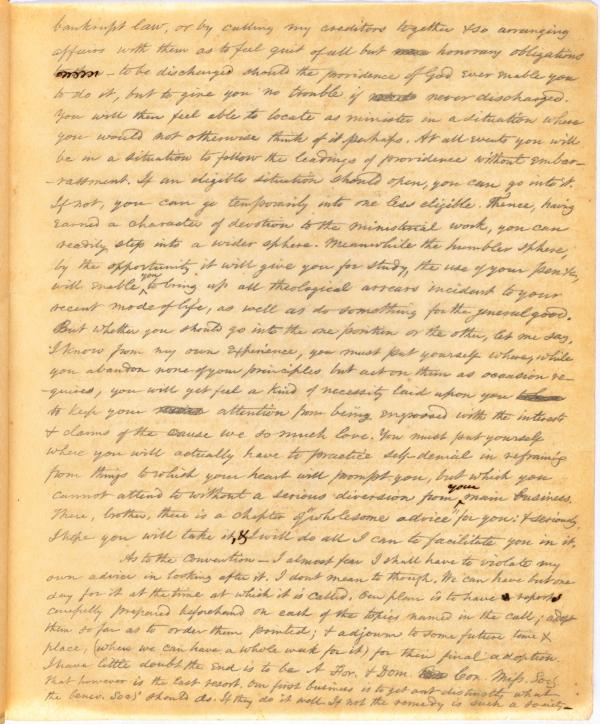 bankrupt law, or by calling my creditors together & so arranging
affairs with them as to feel quit of all but honorary obligations
– to be discharged should the providence of God ever enable you
to do it, but to give you no trouble if never discharged.
You will then feel able to locate as minister in a situation where
you would not otherwise think of it perhaps. At all events you will
be in a situation to follow the leadings of providence without embar-
-rassment. If an eligible situation should open, you can go into it.
If not, you can go temporarily into one less eligible. Thence, having
earned a character of devotion to the ministerial work, you can
readily step into a wider sphere. Meanwhile the humbler sphere,
by the opportunity it will give you for study, the use of your pen &c,
will enable you to bring up all theological arrears incident to your
recent mode of life, as well as do something for the general good.
But whether you should go into the one position or the other, let me say,
I know from my own experience, you must put yourself where, while
you abandon none of your principles but act on them as occasion re-
-quires, you will yet feel a kind of necessity laid upon you
to keep your attention from being engrossed with the interests
& claims of the cause we so much love. You must put yourself
where you will actually have to practice self-denial in refraining
from things to which your heart will prompt you, but which you
cannot attend to without a serious diversion from your main business.
There, brother, there is a chapter of "wholesome advice" for you: & seriously
I hope you will take it, & I will do all I can to facilitate you in it.
As to the Convention – I almost fear I shall have to violate my
own advice in looking after it. I dont mean to though. We can have but one
day for it at the time at which it is called. Our plan is to have reports
carefully prepared beforehand on each of the topics named in the call; adopt
them so far as to order them printed; & adjourn to some future time &
place, (where we can have a whole week for it) for their final adoption.
I have little doubt the end is to be A For. & Dom. Con. Miss. Socy
that however is the last resort. Our first business is to get out distinctly what
the benev. Socs' should do. If they do it well. If not the remedy is such a society–